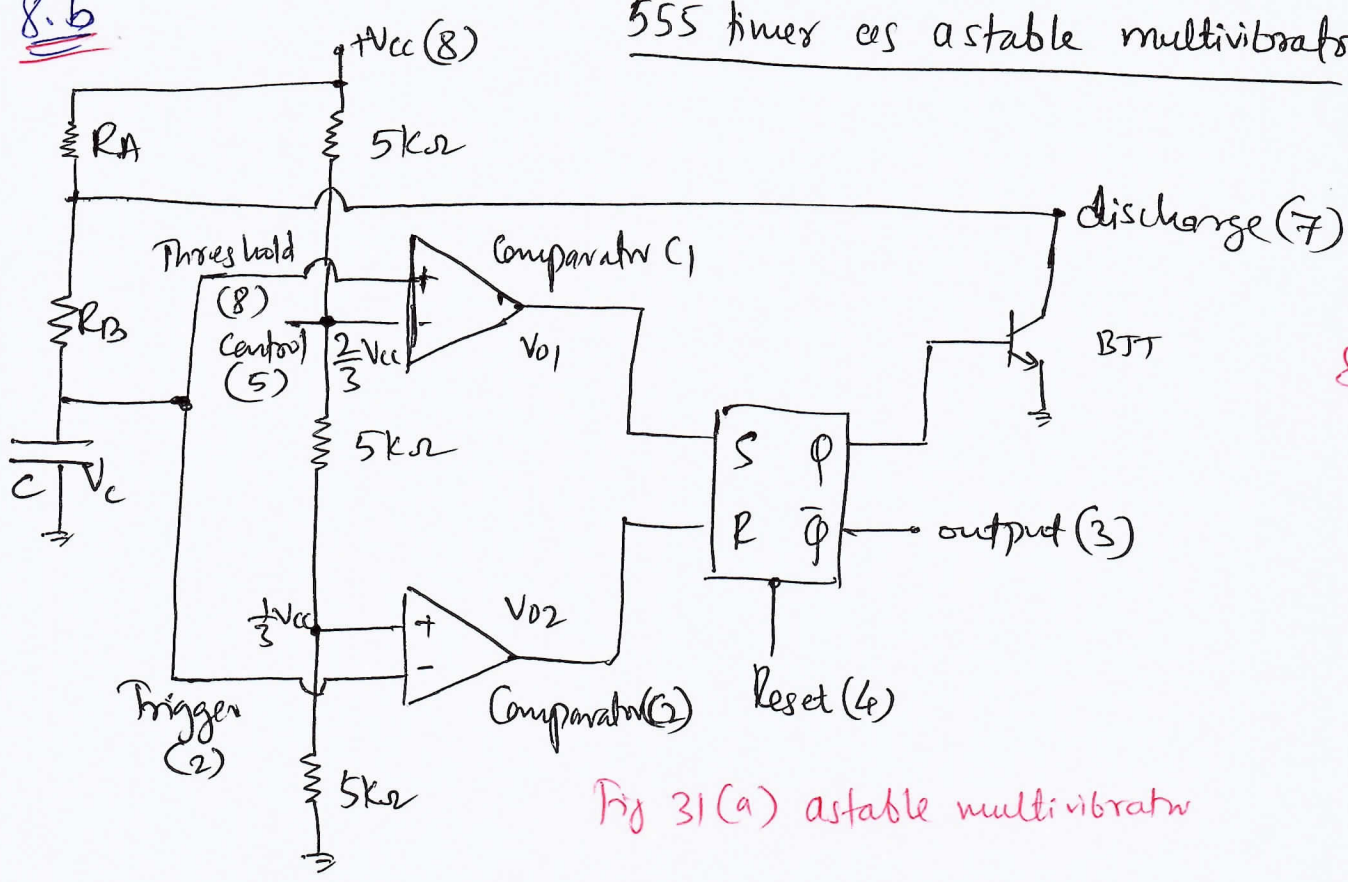 8.b
555 timer as astable multivibrato
+Vcc (8)
RA
5KΩ
discharge (7)
Threshold
(8)
Comparator C1
+
-
RB
Control
(5)
2/3 Vcc
V01
BJT
5KΩ
C
Vc
S Q
R Q̄
output (3)
1/3 Vcc
+
-
V02
Trigger
(2)
Comparator (2)
Reset (4)
5KΩ
Fig 31(a) astable multivibrator